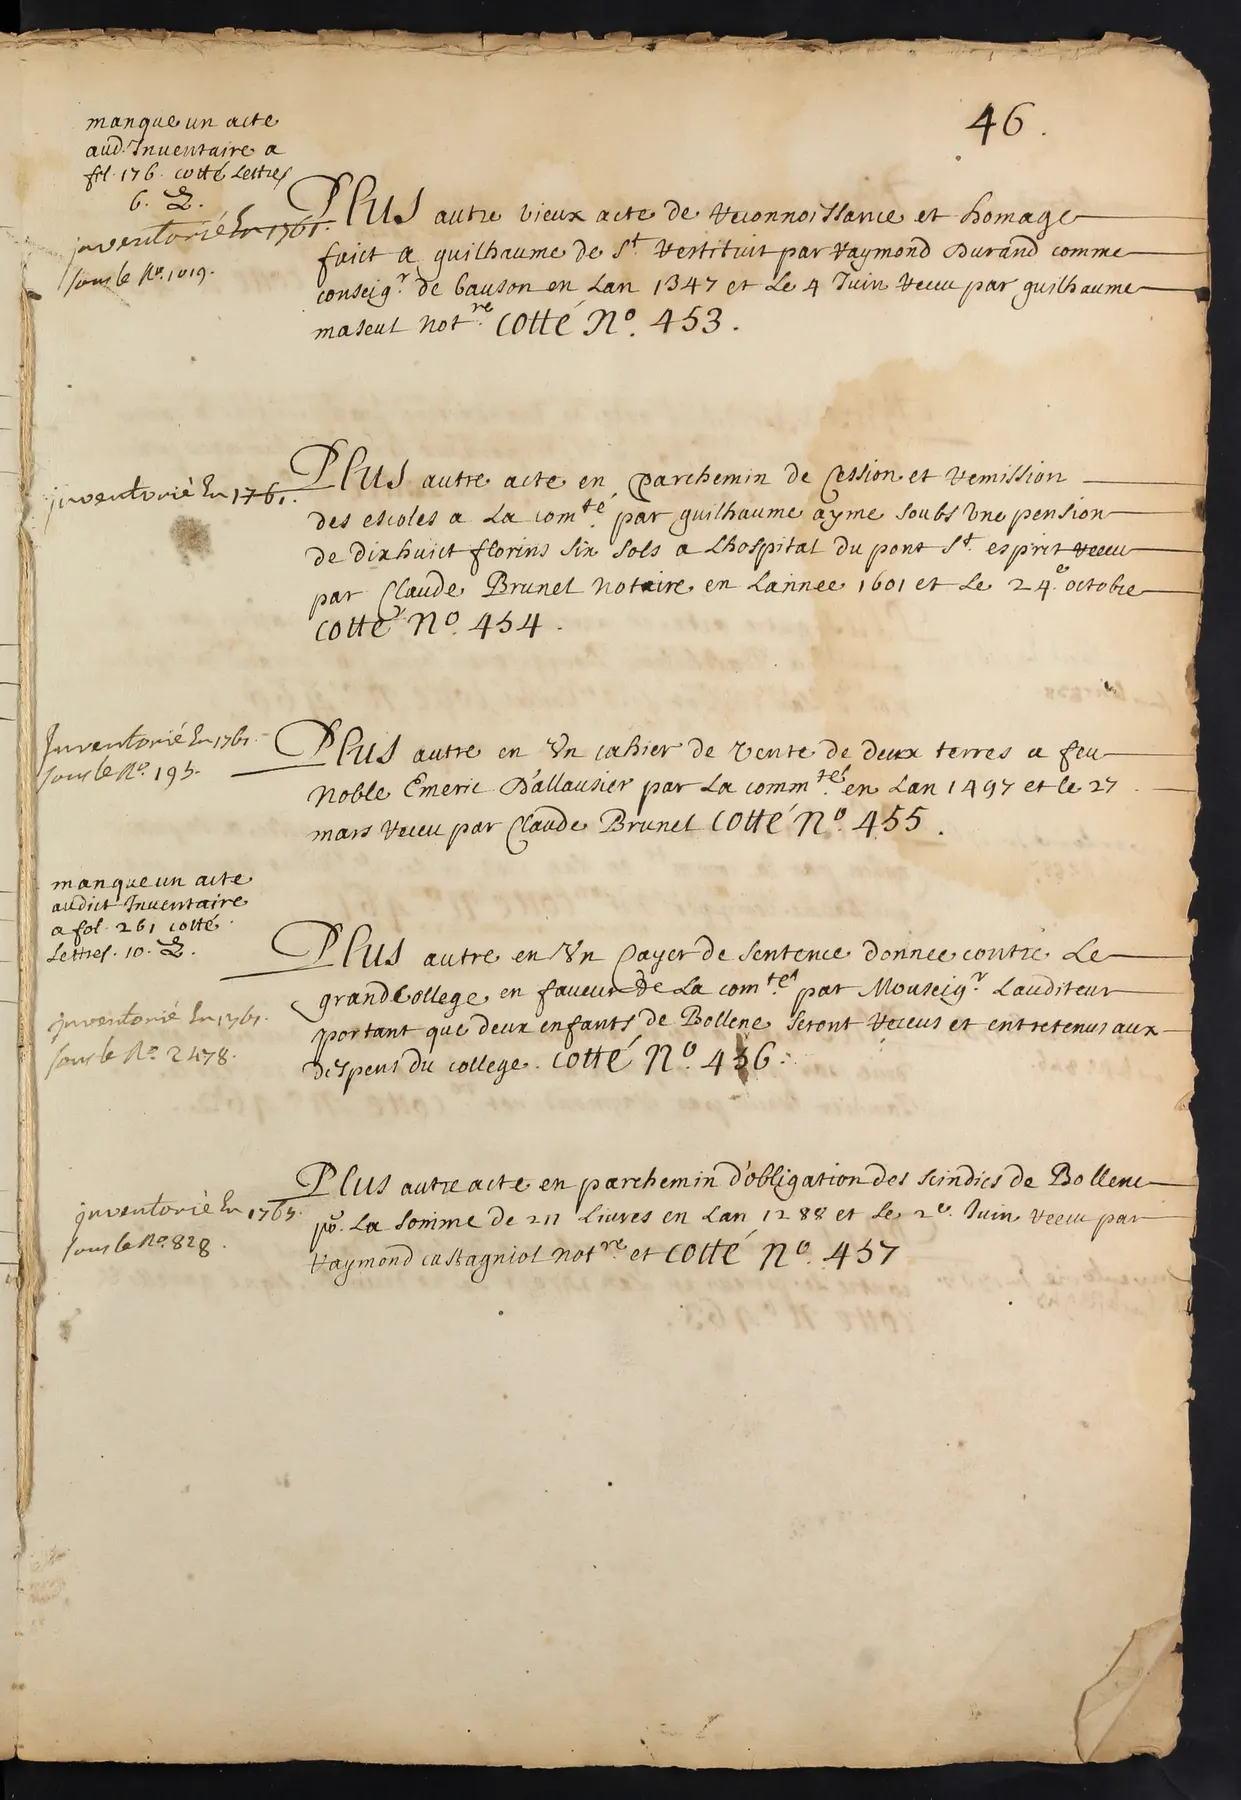 46.
manque un acte
aud. Inuentaire a
fol. 176. cotté Lettres
6. Z.
inventorié En 1761.
sous le No. 1019.
Plus autre vieux acte de reconnoissance et homage
faict a guilhaume de St restituit par raymond Durand comme
conseigr. de bauson en Lan 1347 et Le 4 Juin receu par guilhaume
maseul notre. cotté No. 453.
inventorié En 1761.
Plus autre acte en parchemin de Cession et remission
des escoles a La comté. par guilhaume ayme soubs Une pension
de dixhuict florins six sols a Lhospital du pont St. esprit receu
par Claude Brunel notaire en Lannee 1601 et Le 24e. octobre
cotté No. 454.
Inventorié En 1761.
sous le No. 195.
Plus autre en Un cahier de vente de deux terres a feu
Noble Emeric D'allausier par La commté. en Lan 1497 et le 27
mars receu par Claude Brunel cotté No. 455.
manque un acte
audict Inuentaire
a fol. 261 cotté
Lettres. 10. Z.
inventorié En 1761.
sous le No. 2478.
Plus autre en Un Cayer de sentence donnee contre Le
grand College en faueur de La comté. par Monseigr. Lauditeur
portant que deux enfants de Bollene seront receus et entretenus aux
despens du college. cotté No. 456.
inventorié En 1765.
sous le No. 828.
Plus autre acte en parchemin d'obligation des scindics de Bollene
po. La somme de 211 Liures en Lan 1288 et Le 2e. Juin receu par
raymond castagniol notre et cotté No. 457